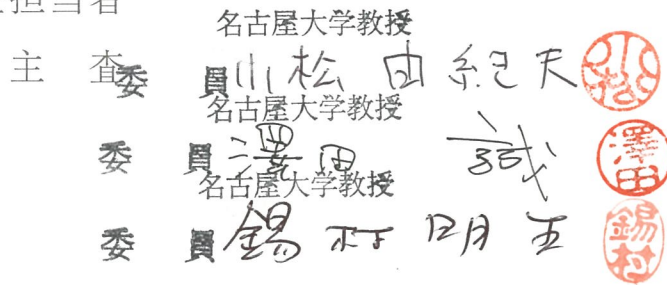 担当者
名古屋大学教授
主査委員 小松由紀夫 小松
名古屋大学教授
委員 澤田誠 澤田
名古屋大学教授
委員 錫村明生 錫村